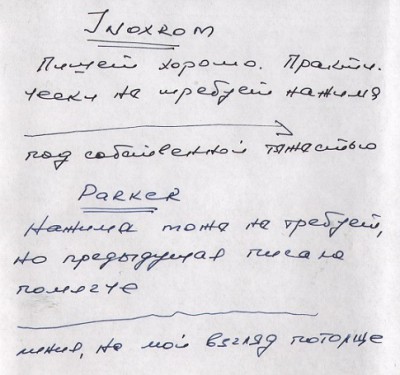 Inoxrom
Пишет хорошо. Практи-
чески не требует нажима
под собственной тяжестью
Parker
Нажима тоже не требует,
но предыдущая писала
помягче
линия, на мой взгляд потолще